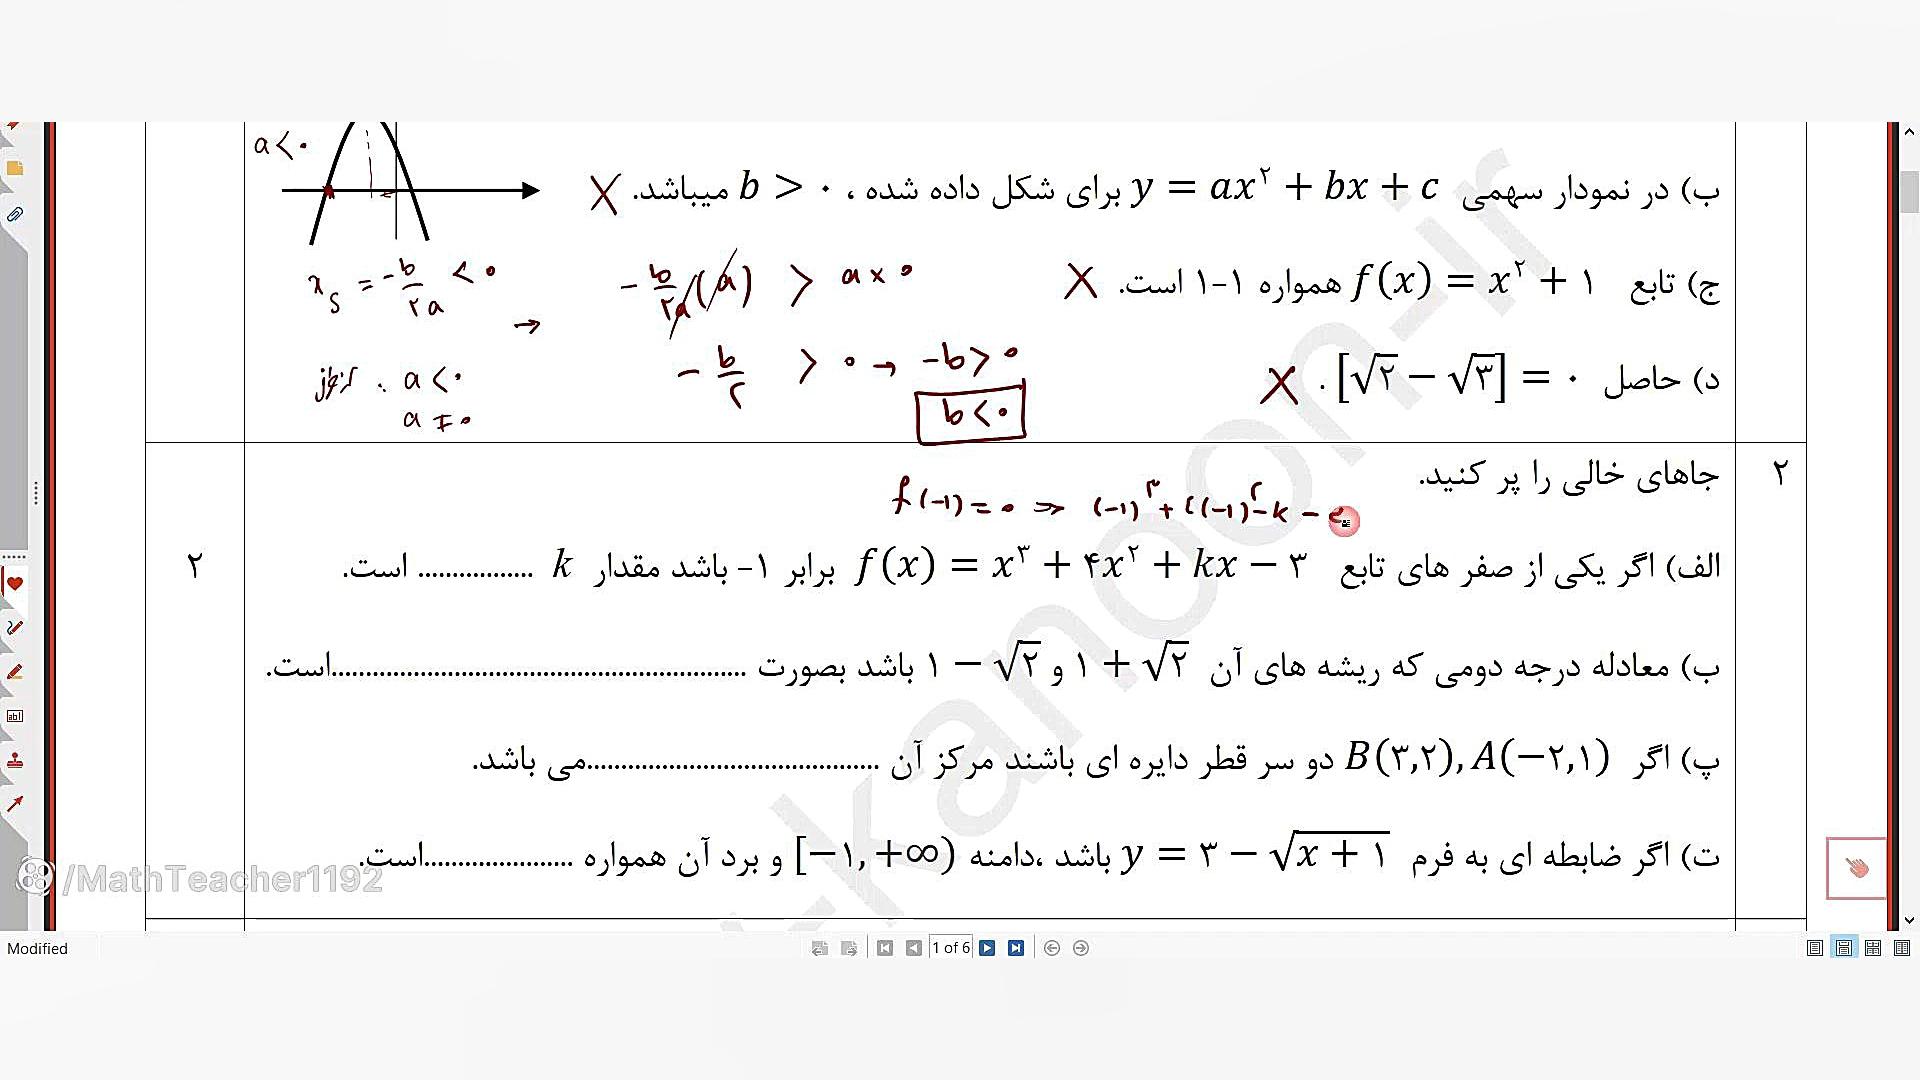 a < ۰
ب) در نمودار سهمی y = ax² + bx + c برای شکل داده شده ، b > ۰ میباشد. X
x_S = -b/۲a < ۰ → -b/۲a (a) > a × ۰
ج) تابع f(x) = x² + ۱ همواره ۱-۱ است. X
-b/۲ > ۰ → -b > ۰
a < ۰
a ≠ ۰
b < ۰
د) حاصل [√۲ − √۳] = ۰ . X
۲
جاهای خالی را پر کنید.
f(-۱) = ۰ ⇒ (-۱)³ + ۴(-۱)² - k - ۳
۲
الف) اگر یکی از صفر های تابع f(x) = x³ + ۴x² + kx − ۳ برابر ۱- باشد مقدار k ................. است.
ب) معادله درجه دومی که ریشه های آن ۱ + √۲ و ۱ − √۲ باشد بصورت ..............................................................است.
پ) اگر B(۳,۲), A(−۲,۱) دو سر قطر دایره ای باشند مرکز آن ...........................................می باشد.
ت) اگر ضابطه ای به فرم y = ۳ − √(x + ۱) باشد ،دامنه [−۱, +∞) و برد آن همواره ......................است.
k-kanoon-ir
/MathTeacher1192
Modified
1 of 6